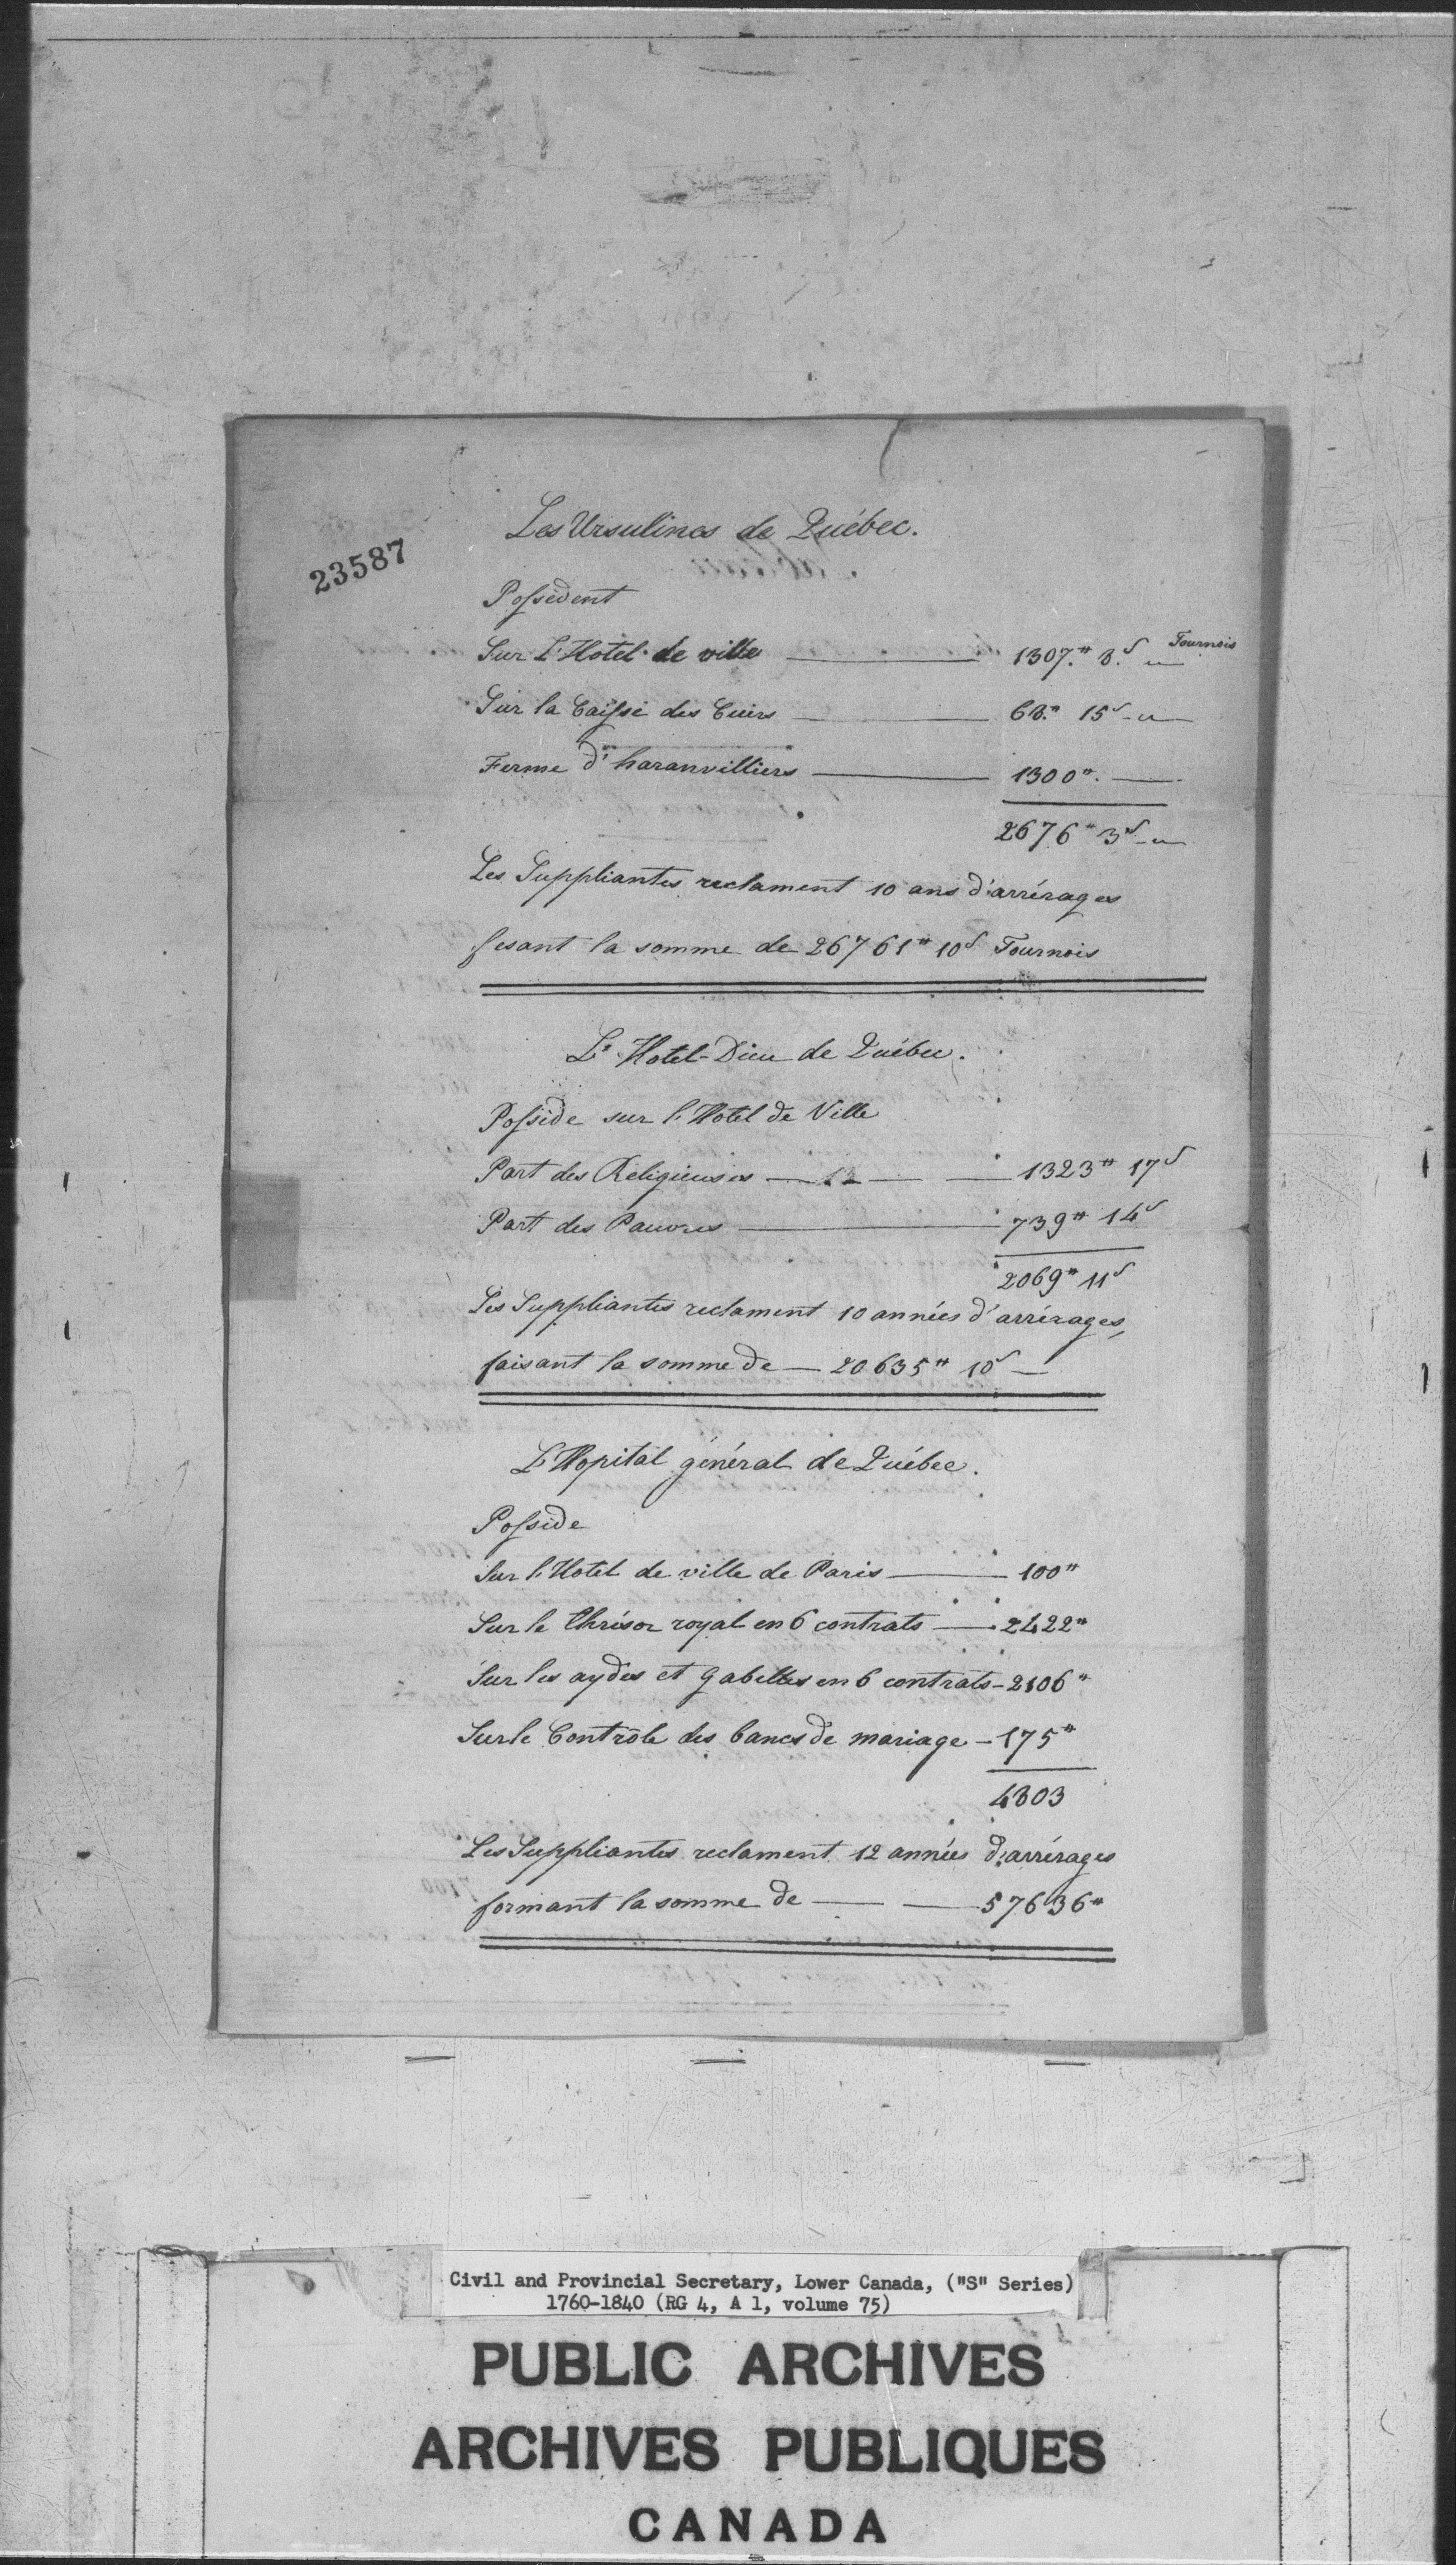 23587
Les Ursulines de Québec.
Possèdent
Sur L'Hotel de ville — 1307.# 8.s " Tournois
Sur la Caisse des Cuirs — 68.# 15s - "
Ferme d'haranvilliers — 1300#. —
2676# 3s - "
Les Suppliantes reclament 10 ans d'arrérages
fesant la somme de 26761# 10s Tournois
L'Hotel-Dieu de Québec.
Possède sur l'Hotel de Ville
Part des Religieuses — 12 — — 1323# 17s
Part des Pauvres — 739# 14s
2069# 11s
Les Suppliantes reclament 10 années d'arrérages,
faisant la somme de — 20635# 10s —
L'Hopital général de Québec.
Possède
Sur l'Hotel de ville de Paris — 100#
Sur le thrésor royal en 6 contrats — 2422#
Sur les aydes et Gabelles en 6 contrats - 2106#
Sur le Contrôle des bancs de mariage - 175#
4803
Les Suppliantes reclament 12 années d'arrérages
formant la somme de — — 57636#
Civil and Provincial Secretary, Lower Canada, ("S" Series)
1760-1840 (RG 4, A 1, volume 75)
PUBLIC ARCHIVES
ARCHIVES PUBLIQUES
CANADA